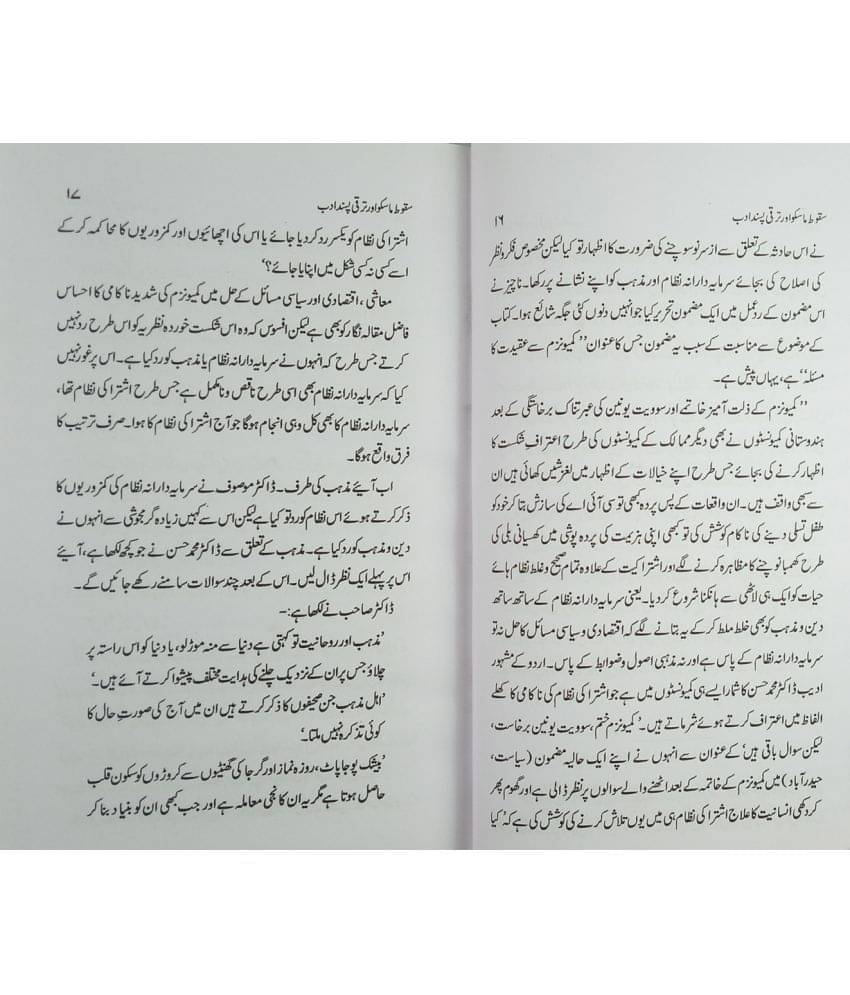 سقوط ماسکو اور ترقی پسند ادب
۱۶
نے اس حادثہ کے تعلق سے از سر نو سوچنے کی ضرورت کا اظہار تو کیا لیکن مخصوص فکر و نظر
کی اصلاح کی بجائے سرمایہ دارانہ نظام اور مذہب کو اپنے نشانے پر رکھا۔ ناچیز نے
اس مضمون کے ردعمل میں ایک مضمون تحریر کیا جو انہیں دنوں کئی جگہ شائع ہوا۔ کتاب
کے موضوع سے مناسبت کے سبب یہ مضمون جس کا عنوان ”کمیونزم سے عقیدت کا
مسئلہ“ ہے، یہاں پیش ہے۔
”کمیونزم کے ذلت آمیز خاتمے اور سوویت یونین کی عبرتناک برخاستگی کے بعد
ہندوستانی کمیونسٹوں نے بھی دیگر ممالک کے کمیونسٹوں کی طرح اعترافِ شکست کا
اظہار کرنے کی بجائے جس طرح اپنے خیالات کے اظہار میں لغزشیں کھائی ہیں ان
سے سبھی واقف ہیں۔ ان واقعات کے پس پردہ کبھی تو سی آئی اے کی سازش بتا کر خود کو
طفل تسلی دینے کی ناکام کوشش کی تو کبھی اپنی ہزیمت کی پردہ پوشی میں کھسیانی بلی کی
طرح کھمبا نوچنے کا مظاہرہ کرنے لگے اور اشتراکیت کے علاوہ تمام صحیح و غلط نظام ہائے
حیات کو ایک ہی لاٹھی سے ہانکنا شروع کر دیا۔ یعنی سرمایہ دارانہ نظام کے ساتھ ساتھ
دین و مذہب کو بھی خلط ملط کر کے یہ بتانے لگے کہ اقتصادی و سیاسی مسائل کا حل نہ تو
سرمایہ دارانہ نظام کے پاس ہے اور نہ مذہبی اصول و ضوابط کے پاس۔ اردو کے مشہور
ادیب ڈاکٹر محمد حسن کا شمار ایسے ہی کمیونسٹوں میں ہے جو اشتراکی نظام کی ناکامی کا کھلے
الفاظ میں اعتراف کرتے ہوئے شرماتے ہیں۔ ’کمیونزم ختم، سوویت یونین برخاست،
لیکن سوال باقی ہیں‘ کے عنوان سے انہوں نے اپنے ایک حالیہ مضمون (سیاست،
حیدرآباد) میں کمیونزم کے خاتمہ کے بعد اٹھنے والے سوالوں پر نظر ڈالی ہے اور گھوم پھر
کر دکھی انسانیت کا علاج اشتراکی نظام ہی میں یوں تلاش کرنے کی کوشش کی ہے کہ ’کیا
سقوط ماسکو اور ترقی پسند ادب
۱۷
اشتراکی نظام کو یکسر رد کر دیا جائے یا اس کی اچھائیوں اور کمزوریوں کا محاکمہ کر کے
اسے کسی نہ کسی شکل میں اپنایا جائے؟‘
معاشی، اقتصادی اور سیاسی مسائل کے حل میں کمیونزم کی شدید ناکامی کا احساس
فاضل مقالہ نگار کو بھی ہے لیکن افسوس کہ وہ اس شکست خوردہ نظریہ کو اس طرح رد نہیں
کرتے جس طرح کہ انہوں نے سرمایہ دارانہ نظام یا مذہب کو رد کیا ہے۔ اس پر غور نہیں
کیا کہ سرمایہ دارانہ نظام بھی اسی طرح ناقص و نامکمل ہے جس طرح اشتراکی نظام تھا،
سرمایہ دارانہ نظام کا بھی کل وہی انجام ہو گا جو آج اشتراکی نظام کا ہوا۔ صرف ترتیب کا
فرق واقع ہو گا۔
اب آیئے مذہب کی طرف۔ ڈاکٹر موصوف نے سرمایہ دارانہ نظام کی کمزوریوں کا
ذکر کرتے ہوئے اس نظام کو رد تو کیا ہے لیکن اس سے کہیں زیادہ گرمجوشی سے انہوں نے
دین و مذہب کو رد کیا ہے۔ مذہب کے تعلق سے ڈاکٹر محمد حسن نے جو کچھ لکھا ہے، آیئے
اس پر پہلے ایک نظر ڈال لیں۔ اس کے بعد چند سوالات سامنے رکھے جائیں گے۔
ڈاکٹر صاحب نے لکھا ہے:-
’مذہب اور روحانیت تو کہتی ہے دنیا سے منہ موڑ لو، یا دنیا کو اس راستہ پر
چلاؤ جس پر ان کے نزدیک چلنے کی ہدایت مختلف پیشوا کرتے آئے ہیں۔‘
’اہل مذہب جن صحیفوں کا ذکر کرتے ہیں ان میں آج کی صورتِ حال کا
کوئی تذکرہ نہیں ملتا۔‘
’بیشک پوجا پاٹ، روزہ نماز اور گرجا کی گھنٹیوں سے کروڑوں کو سکون قلب
حاصل ہوتا ہے مگر یہ ان کا نجی معاملہ ہے اور جب کبھی ان کو بنیاد بنا کر